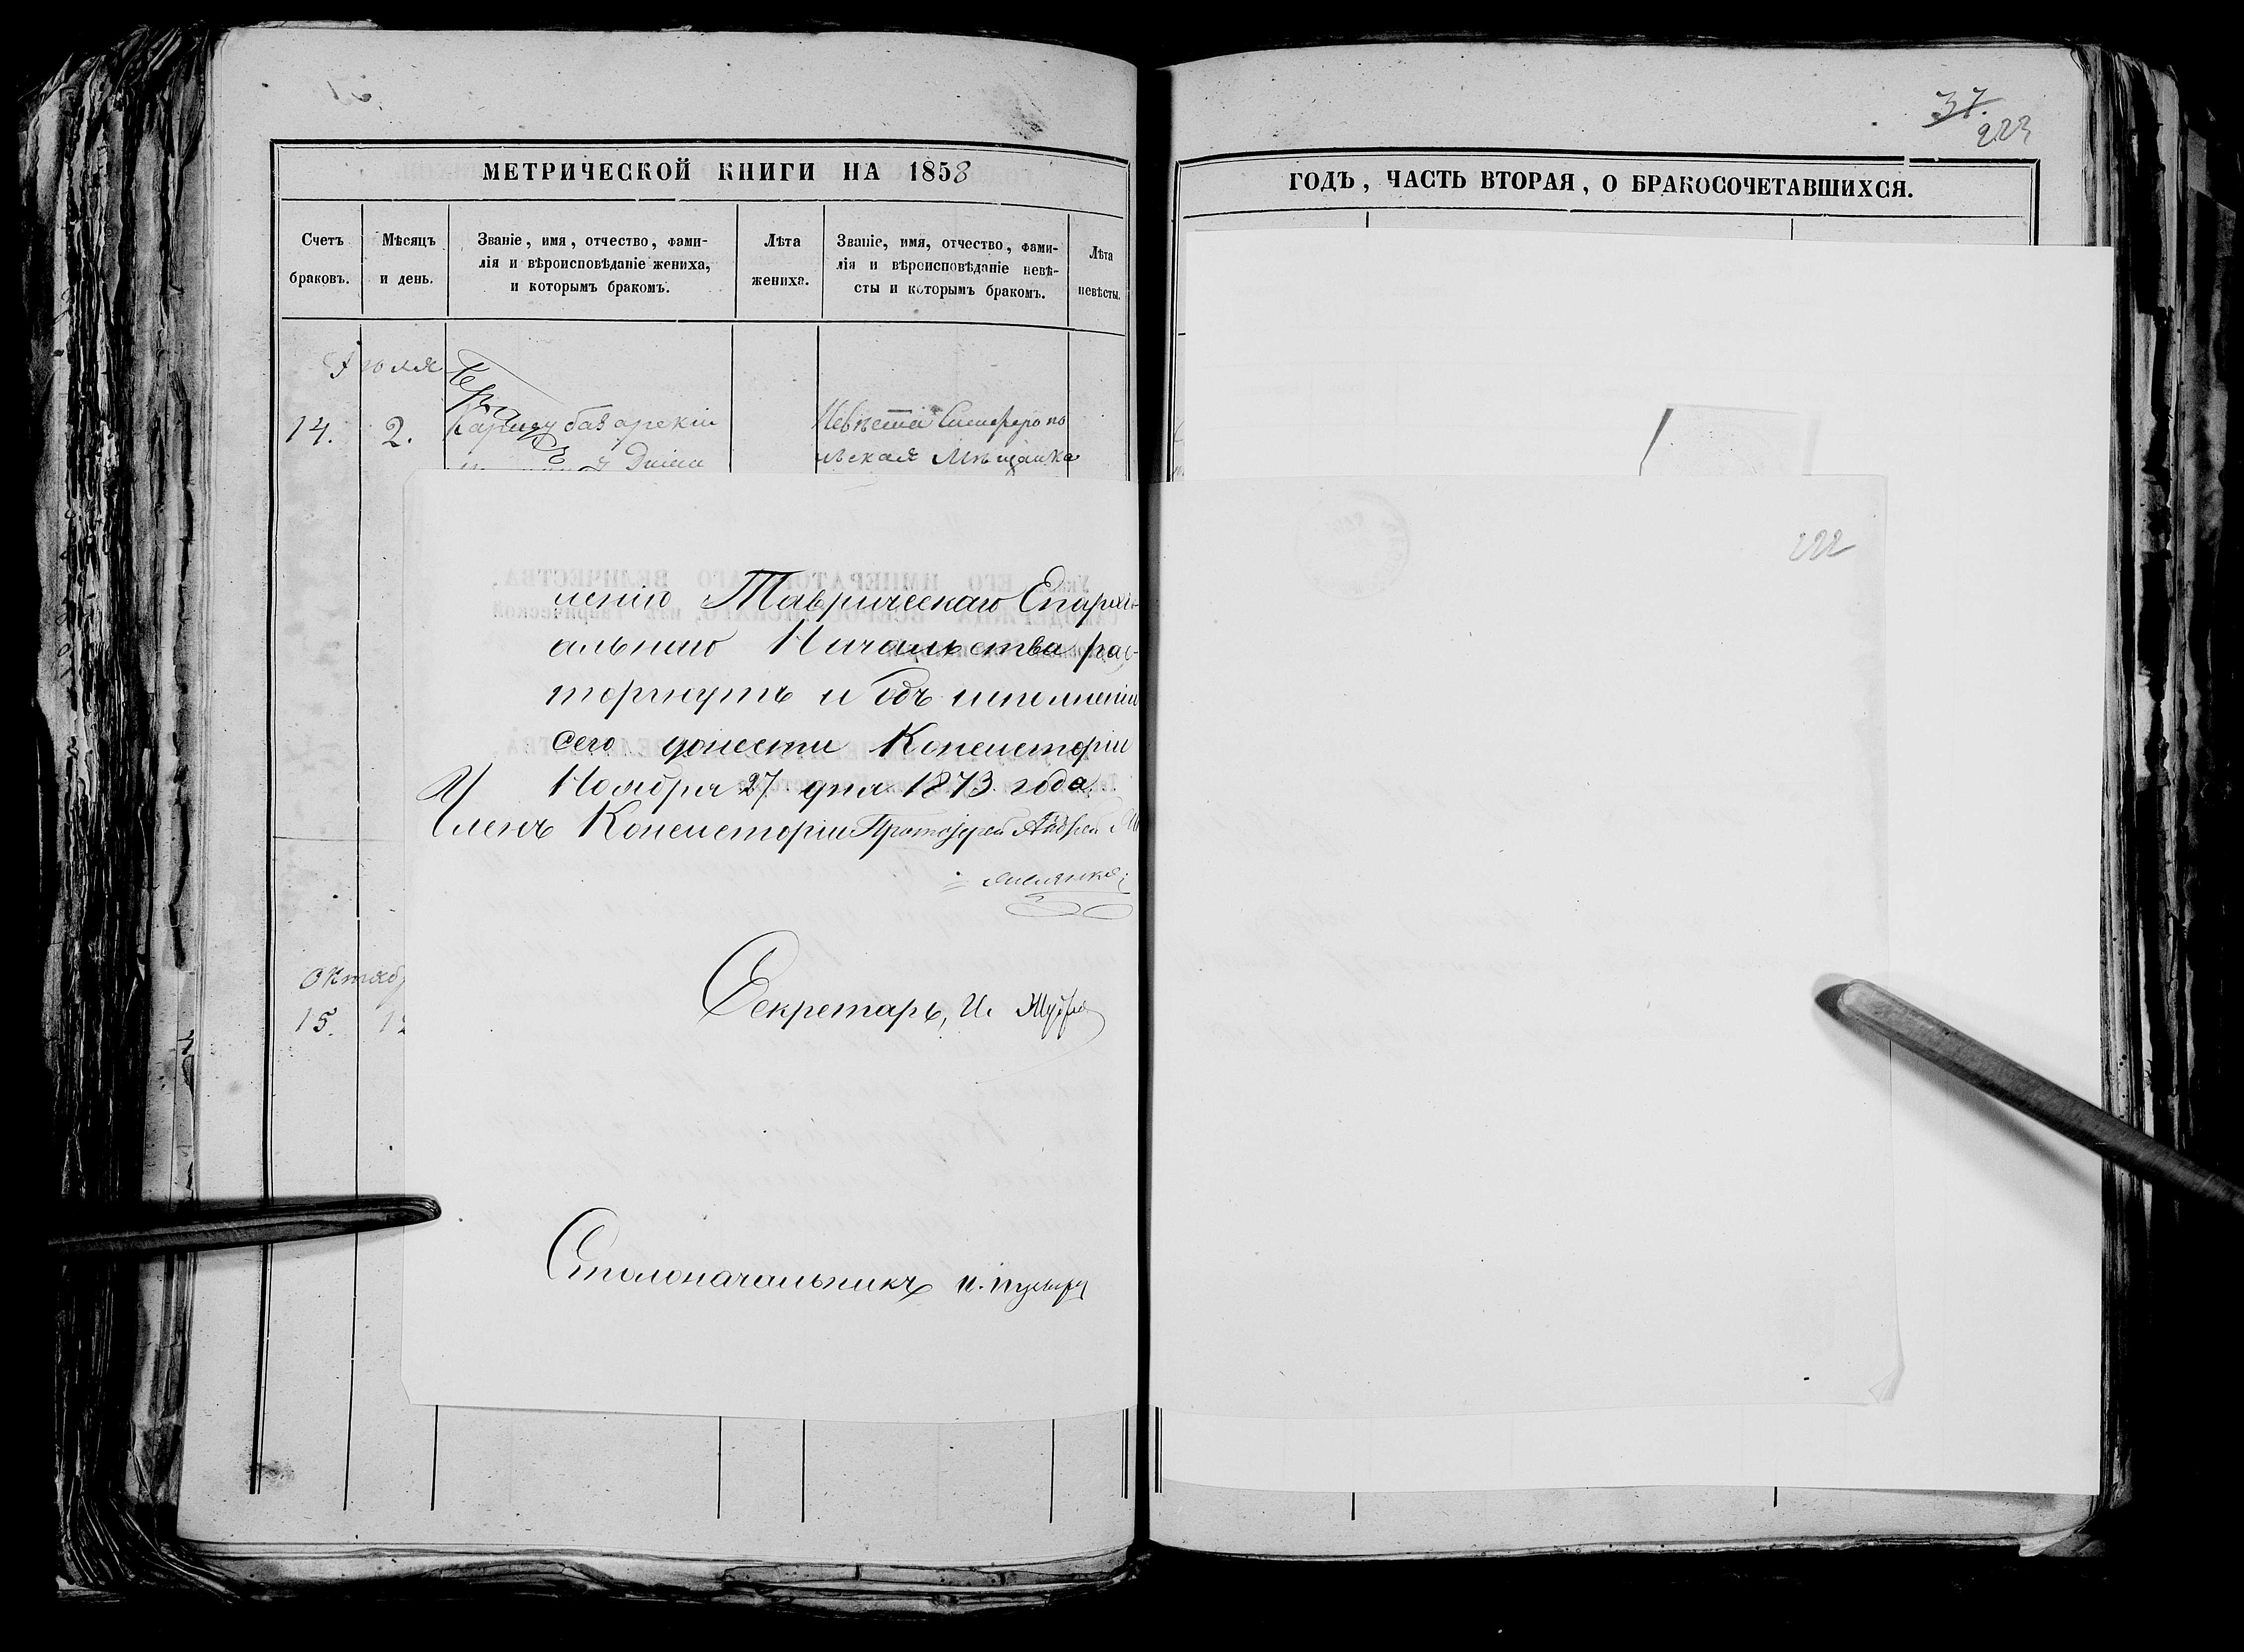 37.
223
МЕТРИЧЕСКОЙ КНИГИ НА 1858
ГОДЪ, ЧАСТЬ ВТОРАЯ, О БРАКОСОЧЕТАВШИХСЯ.
Счетъ браковъ.
Мѣсяцъ и день.
Званіе, имя, отчество, фами-
лія и вѣроисповѣданіе жениха,
и которымъ бракомъ.
Лѣта жениха.
Званіе, имя, отчество, фами-
лія и вѣроисповѣданіе невѣ-
сты и которымъ бракомъ.
Лѣта невѣсты.
Іюля
14. 2.
Невѣста Симферопо
льская Мѣщанка
222
ленію Таврическаго Епархі-
альнаго Начальства рас-
торгнутъ и объ исполненіи
сего донести Консисторіи
Ноября 27 дня 1873 года.
Членъ Консисторіи Протоіерей Андрей
Секретарь, И.
Столоначальникъ И.
Октябр
15. 12